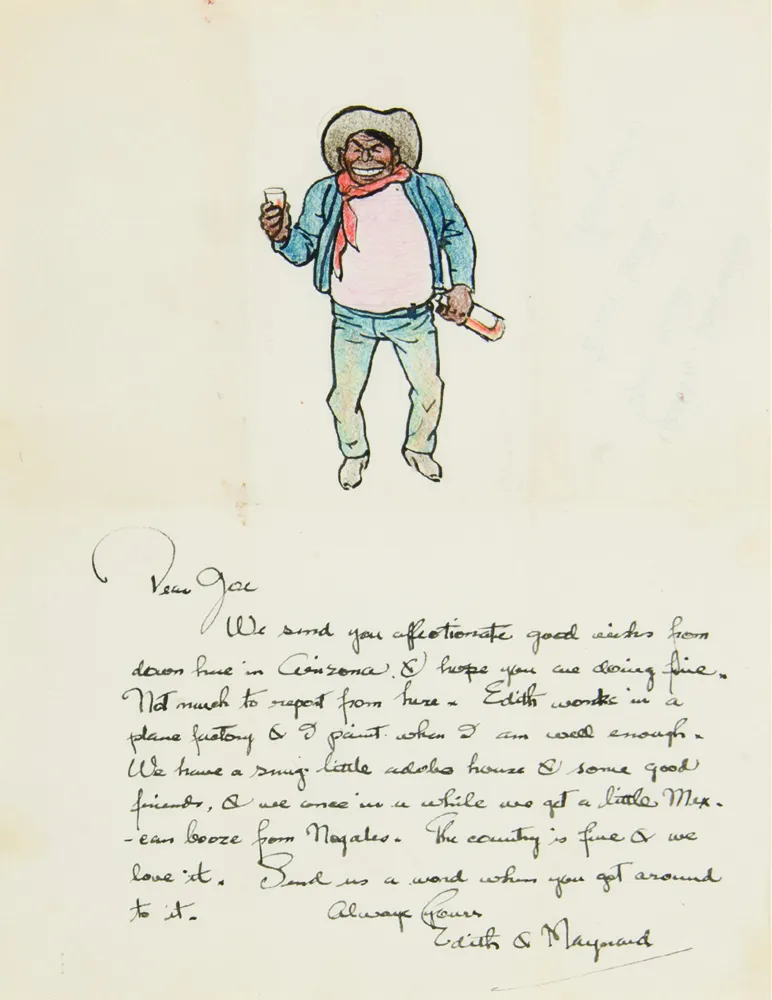 Dear Joe
We send you affectionate good wishes from
down here in Arizona & hope you are doing fine.
Not much to report from here. Edith works in a
plane factory & I paint when I am well enough.
We have a snug little adobe house & some good
friends, & we once in a while we get a little Mex-
-ican booze from Nogales. The country is fine & we
love it. Send us a word when you get around
to it. Always Yours
Edith & Maynard